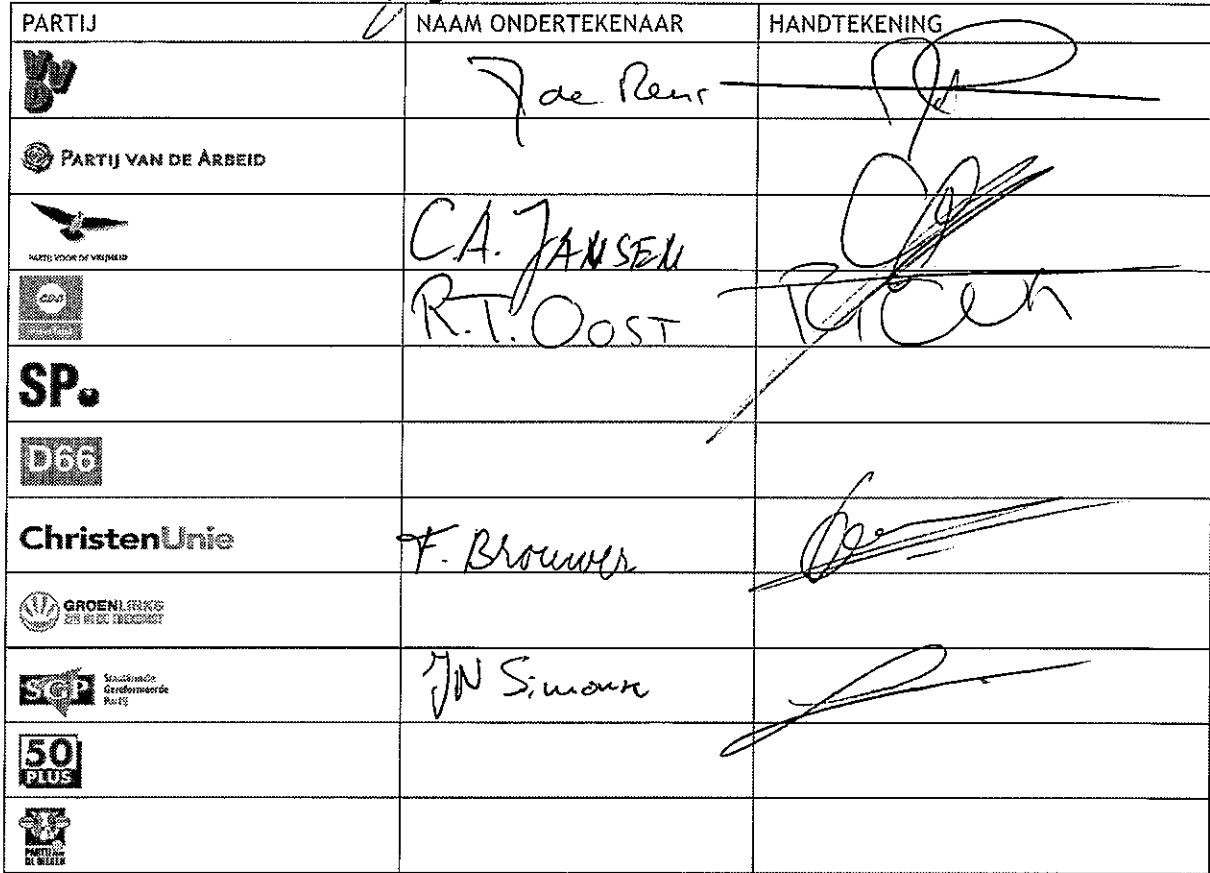 PARTIJ NAAM ONDERTEKENAAR HANDTEKENING
VVD J de Reus
PARTIJ VAN DE ARBEID
PARTIJ VOOR DE VRIJHEID C.A. JANSEN
CDA R.T. OOST
SP.
D66
ChristenUnie F. Brouwer
GROENLINKS
SGP Staatkundig Gereformeerde Partij JN Simonse
50 PLUS
PARTIJ VOOR DE DIEREN